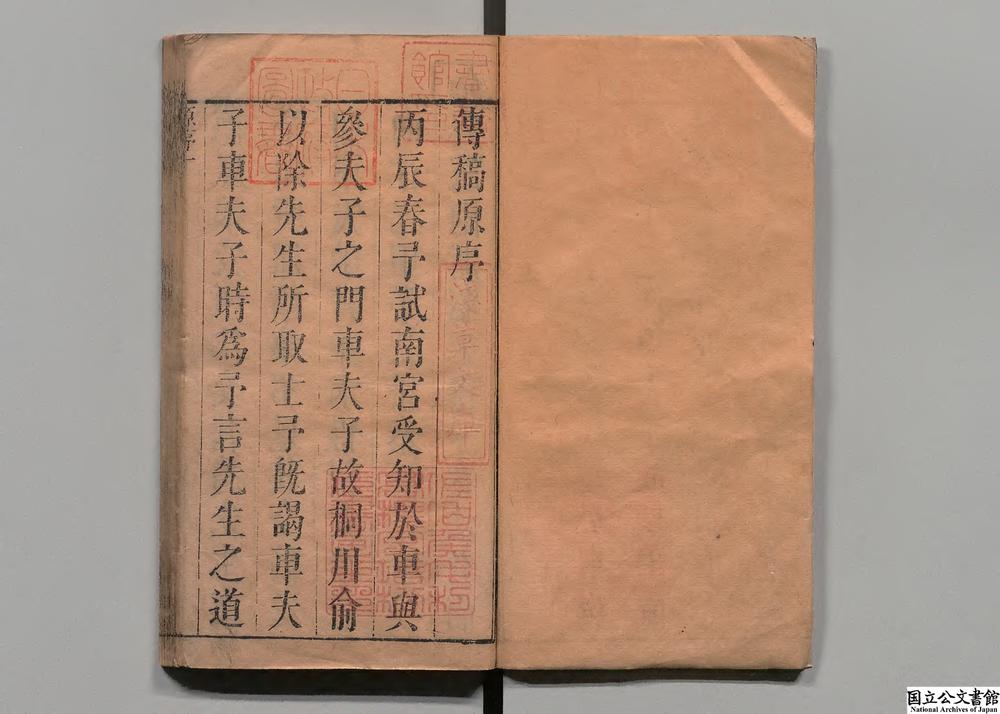 傳稿原序
丙辰春予試南宮受知於車與
參夫子之門車夫子故桐川俞
以除先生所取士予旣謁車夫
子車夫子時爲予言先生之道
原序一
国立公文書館
National Archives of Japan